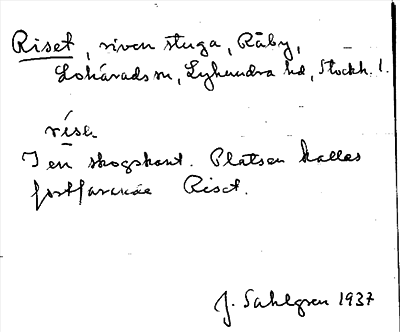 Riset, riven stuga, Räby,
Lohärads sn, Lyhundra hd, Stockh. l.
I en skogskant. Platsen kallas
fortfarande Riset.
J. Sahlgren 1937